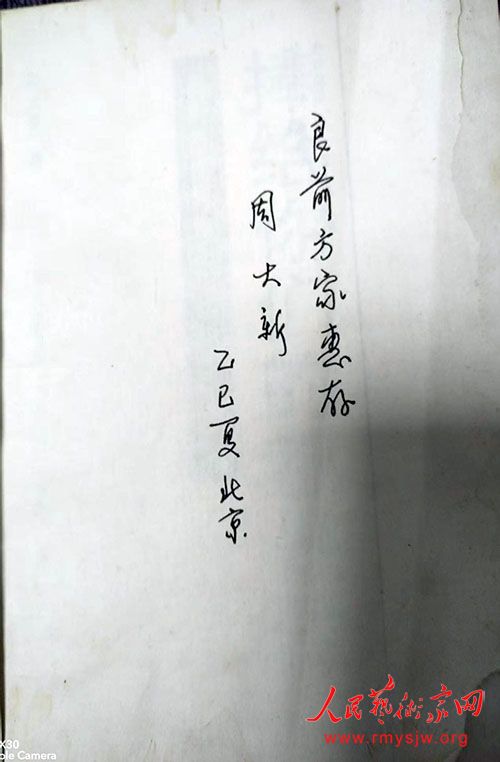 良前方家惠存
周大新
乙巳夏北京
人民藝術家网
www.rmysjw.org
X30
ple Camera